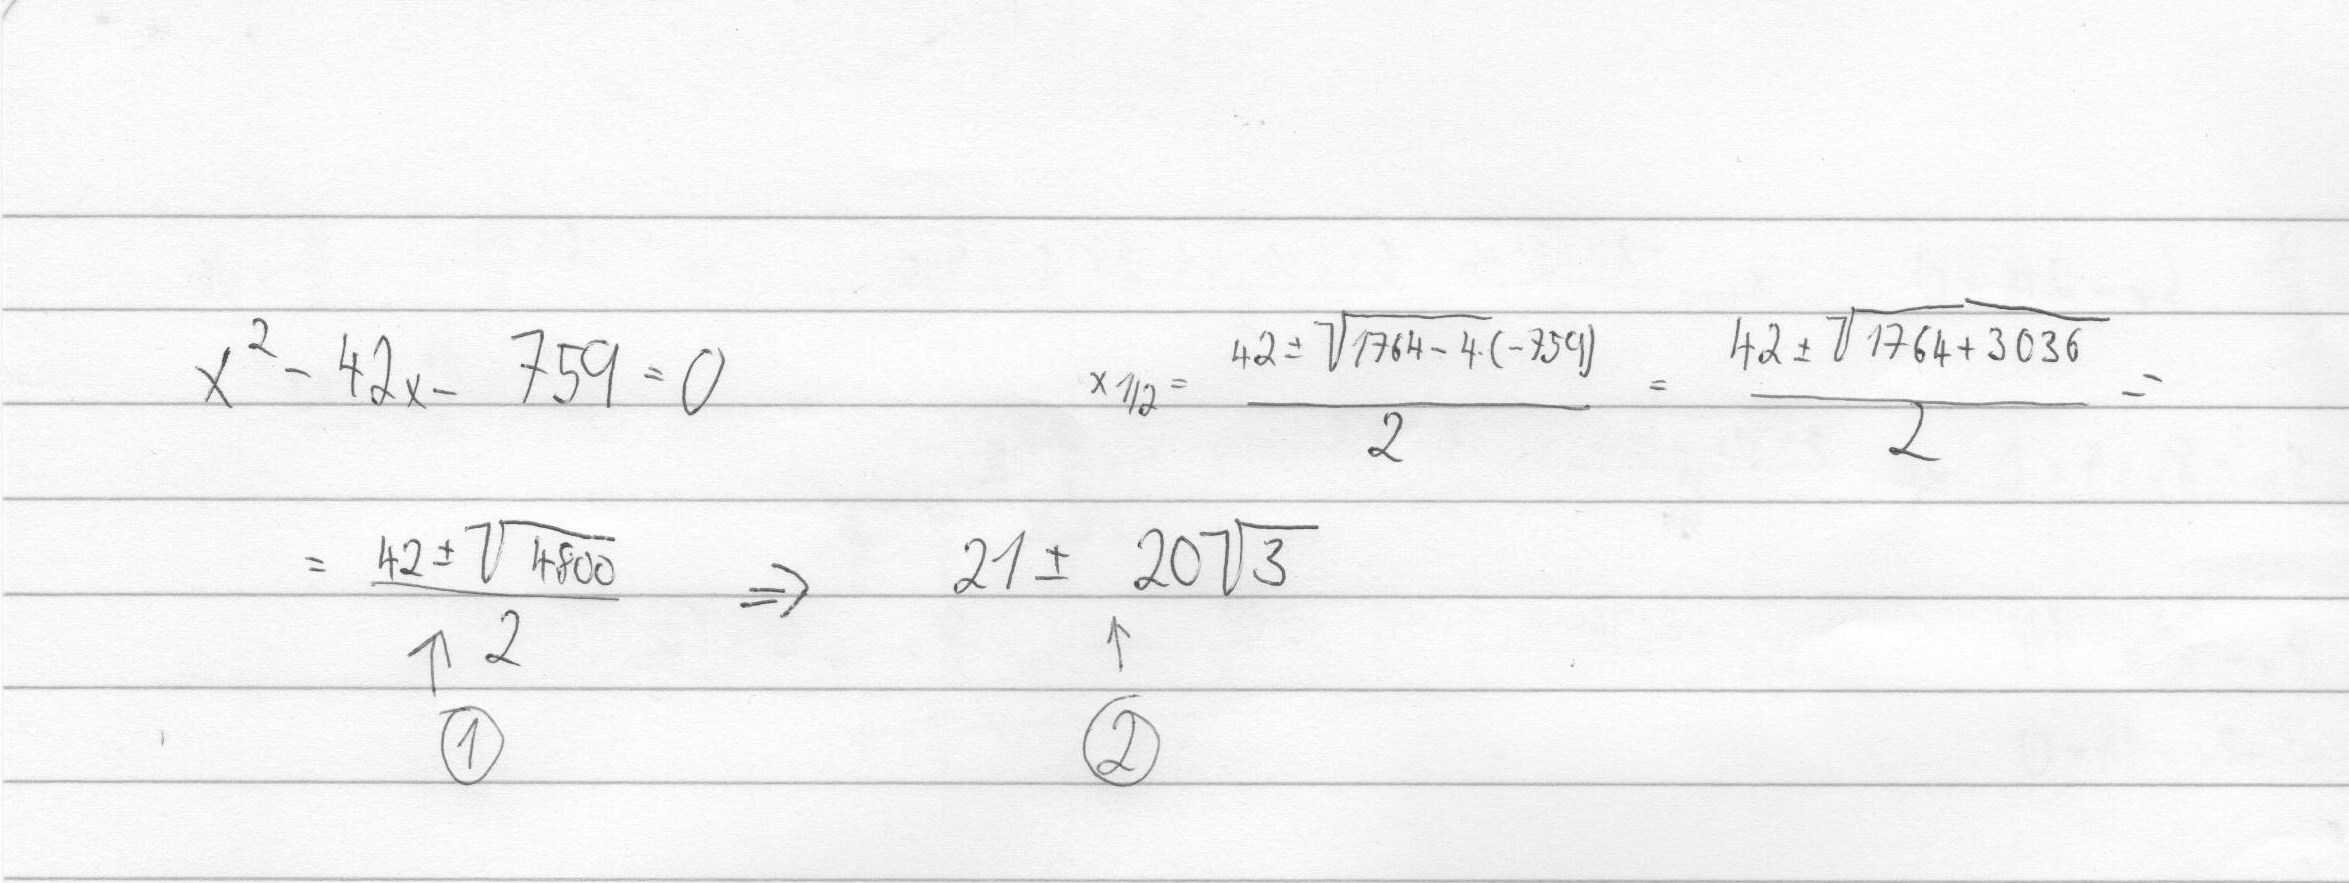 x² - 42x - 759 = 0    x 1/2 = (42 ± √(1764 - 4·(-759)))/2 = (42 ± √(1764 + 3036))/2 =
= (42 ± √4800)/2 ⇒ 21 ± 20√3
↑ ↑
① ②